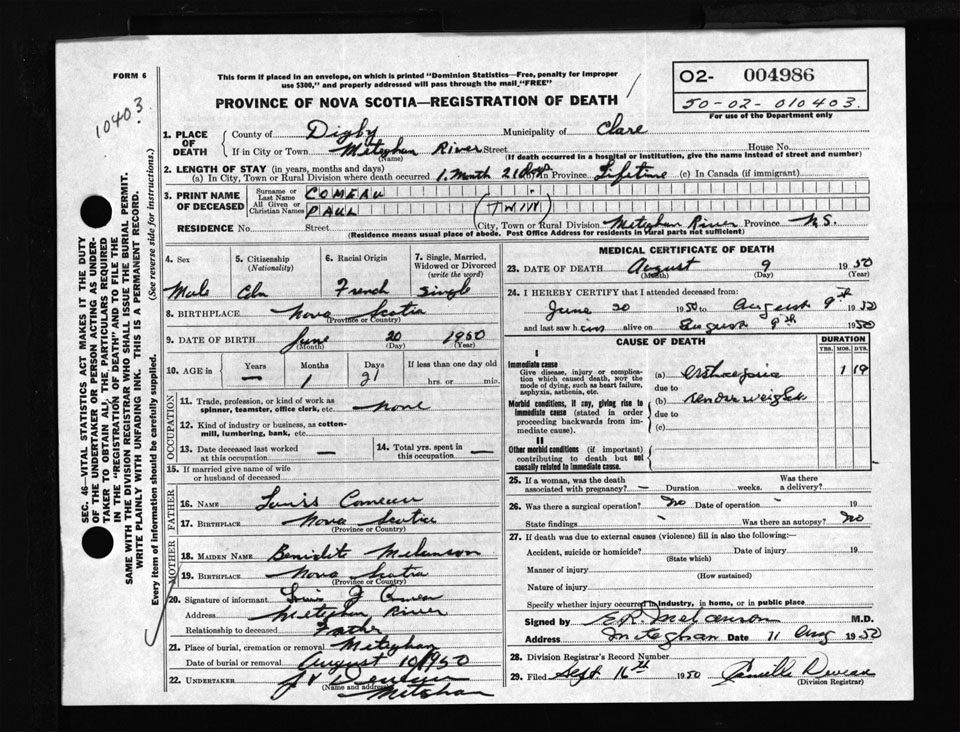 FORM 6
This form if placed in an envelope, on which is printed "Dominion Statistics—Free, penalty for improper
use $300," and properly addressed will pass through the mail "FREE"
O2- 004986
50-02-010403.
For use of the Department only
10403.
PROVINCE OF NOVA SCOTIA—REGISTRATION OF DEATH
1. PLACE OF DEATH County of Digby Municipality of Clare
If in City or Town Meteghan River Street House No.
(Name) (If death occurred in a hospital or institution, give the name instead of street and number)
2. LENGTH OF STAY (in years, months and days)
(a) In City, Town or Rural Division where death occurred 1 Month 21 days (b) in Province Lifetime (c) In Canada (if immigrant)
3. PRINT NAME OF DECEASED Surname or Last Name COMEAU
All Given or Christian Names PAUL (TWIN)
RESIDENCE No. Street (City, Town or Rural Division Meteghan River Province N.S.
(Residence means usual place of abode. Post Office Address for residents in rural parts not sufficient)
4. Sex 5. Citizenship (Nationality) 6. Racial Origin 7. Single, Married, Widowed or Divorced (write the word)
Male Cdn French Single
8. BIRTHPLACE Nova Scotia
(Province or Country)
9. DATE OF BIRTH June 20 1950
(Month) (Day) (Year)
10. AGE in Years Months Days If less than one day old
— 1 21 hrs. or min.
OCCUPATION
11. Trade, profession, or kind of work as spinner, teamster, office clerk, etc. none
12. Kind of industry or business, as cotton-mill, lumbering, bank, etc.
13. Date deceased last worked at this occupation — 14. Total yrs. spent in this occupation —
15. If married give name of wife or husband of deceased
FATHER
16. NAME Louis Comeau
17. BIRTHPLACE Nova Scotia
(Province or Country)
MOTHER
18. MAIDEN NAME Benidite Melanson
19. BIRTHPLACE Nova Scotia
(Province or Country)
20. Signature of informant Louis J Comeau
Address Meteghan River
Relationship to deceased Father
21. Place of burial, cremation or removal Meteghan
Date of burial or removal August 10/1950
22. UNDERTAKER
(Name and address) Meteghan
MEDICAL CERTIFICATE OF DEATH
23. DATE OF DEATH August 9 1950
(Month) (Day) (Year)
24. I HEREBY CERTIFY that I attended deceased from:
June 20 1950 to August 9th 1950
and last saw h alive on August 9th 1950
CAUSE OF DEATH DURATION
YRS. MOS. DYS.
I
Immediate cause
Give disease, injury or complication which caused death, not the mode of dying, such as heart failure, asphyxia, asthenia, etc.
(a) 1 19
due to
Morbid conditions, if any, giving rise to immediate cause (stated in order proceeding backwards from immediate cause).
(b) underweight
due to
(c)
II
Other morbid conditions (if important) contributing to death but not causally related to immediate cause.
25. If a woman, was the death associated with pregnancy? — Duration weeks. Was there a delivery?
26. Was there a surgical operation? no Date of operation - 19
State findings - Was there an autopsy? no
27. If death was due to external causes (violence) fill in also the following:—
Accident, suicide or homicide? Date of injury 19
(State which)
Manner of injury
(How sustained)
Nature of injury
Specify whether injury occurred in industry, in home, or in public place
Signed by E.R. Melanson M.D.
Address Meteghan Date 11 Aug 1950
28. Division Registrar's Record Number
29. Filed Sept 16th 1950 Camille Deveau
(Division Registrar)
SEC. 46—VITAL STATISTICS ACT MAKES IT THE DUTY
OF THE UNDERTAKER OR PERSON ACTING AS UNDER-
TAKER TO OBTAIN ALL THE PARTICULARS REQUIRED
IN THE "REGISTRATION OF DEATH" AND TO FILE THE
SAME WITH THE DIVISION REGISTRAR WHO SHALL ISSUE THE BURIAL PERMIT.
WRITE PLAINLY WITH UNFADING INK. THIS IS A PERMANENT RECORD.
Every item of information should be carefully supplied. (See reverse side for instructions.)